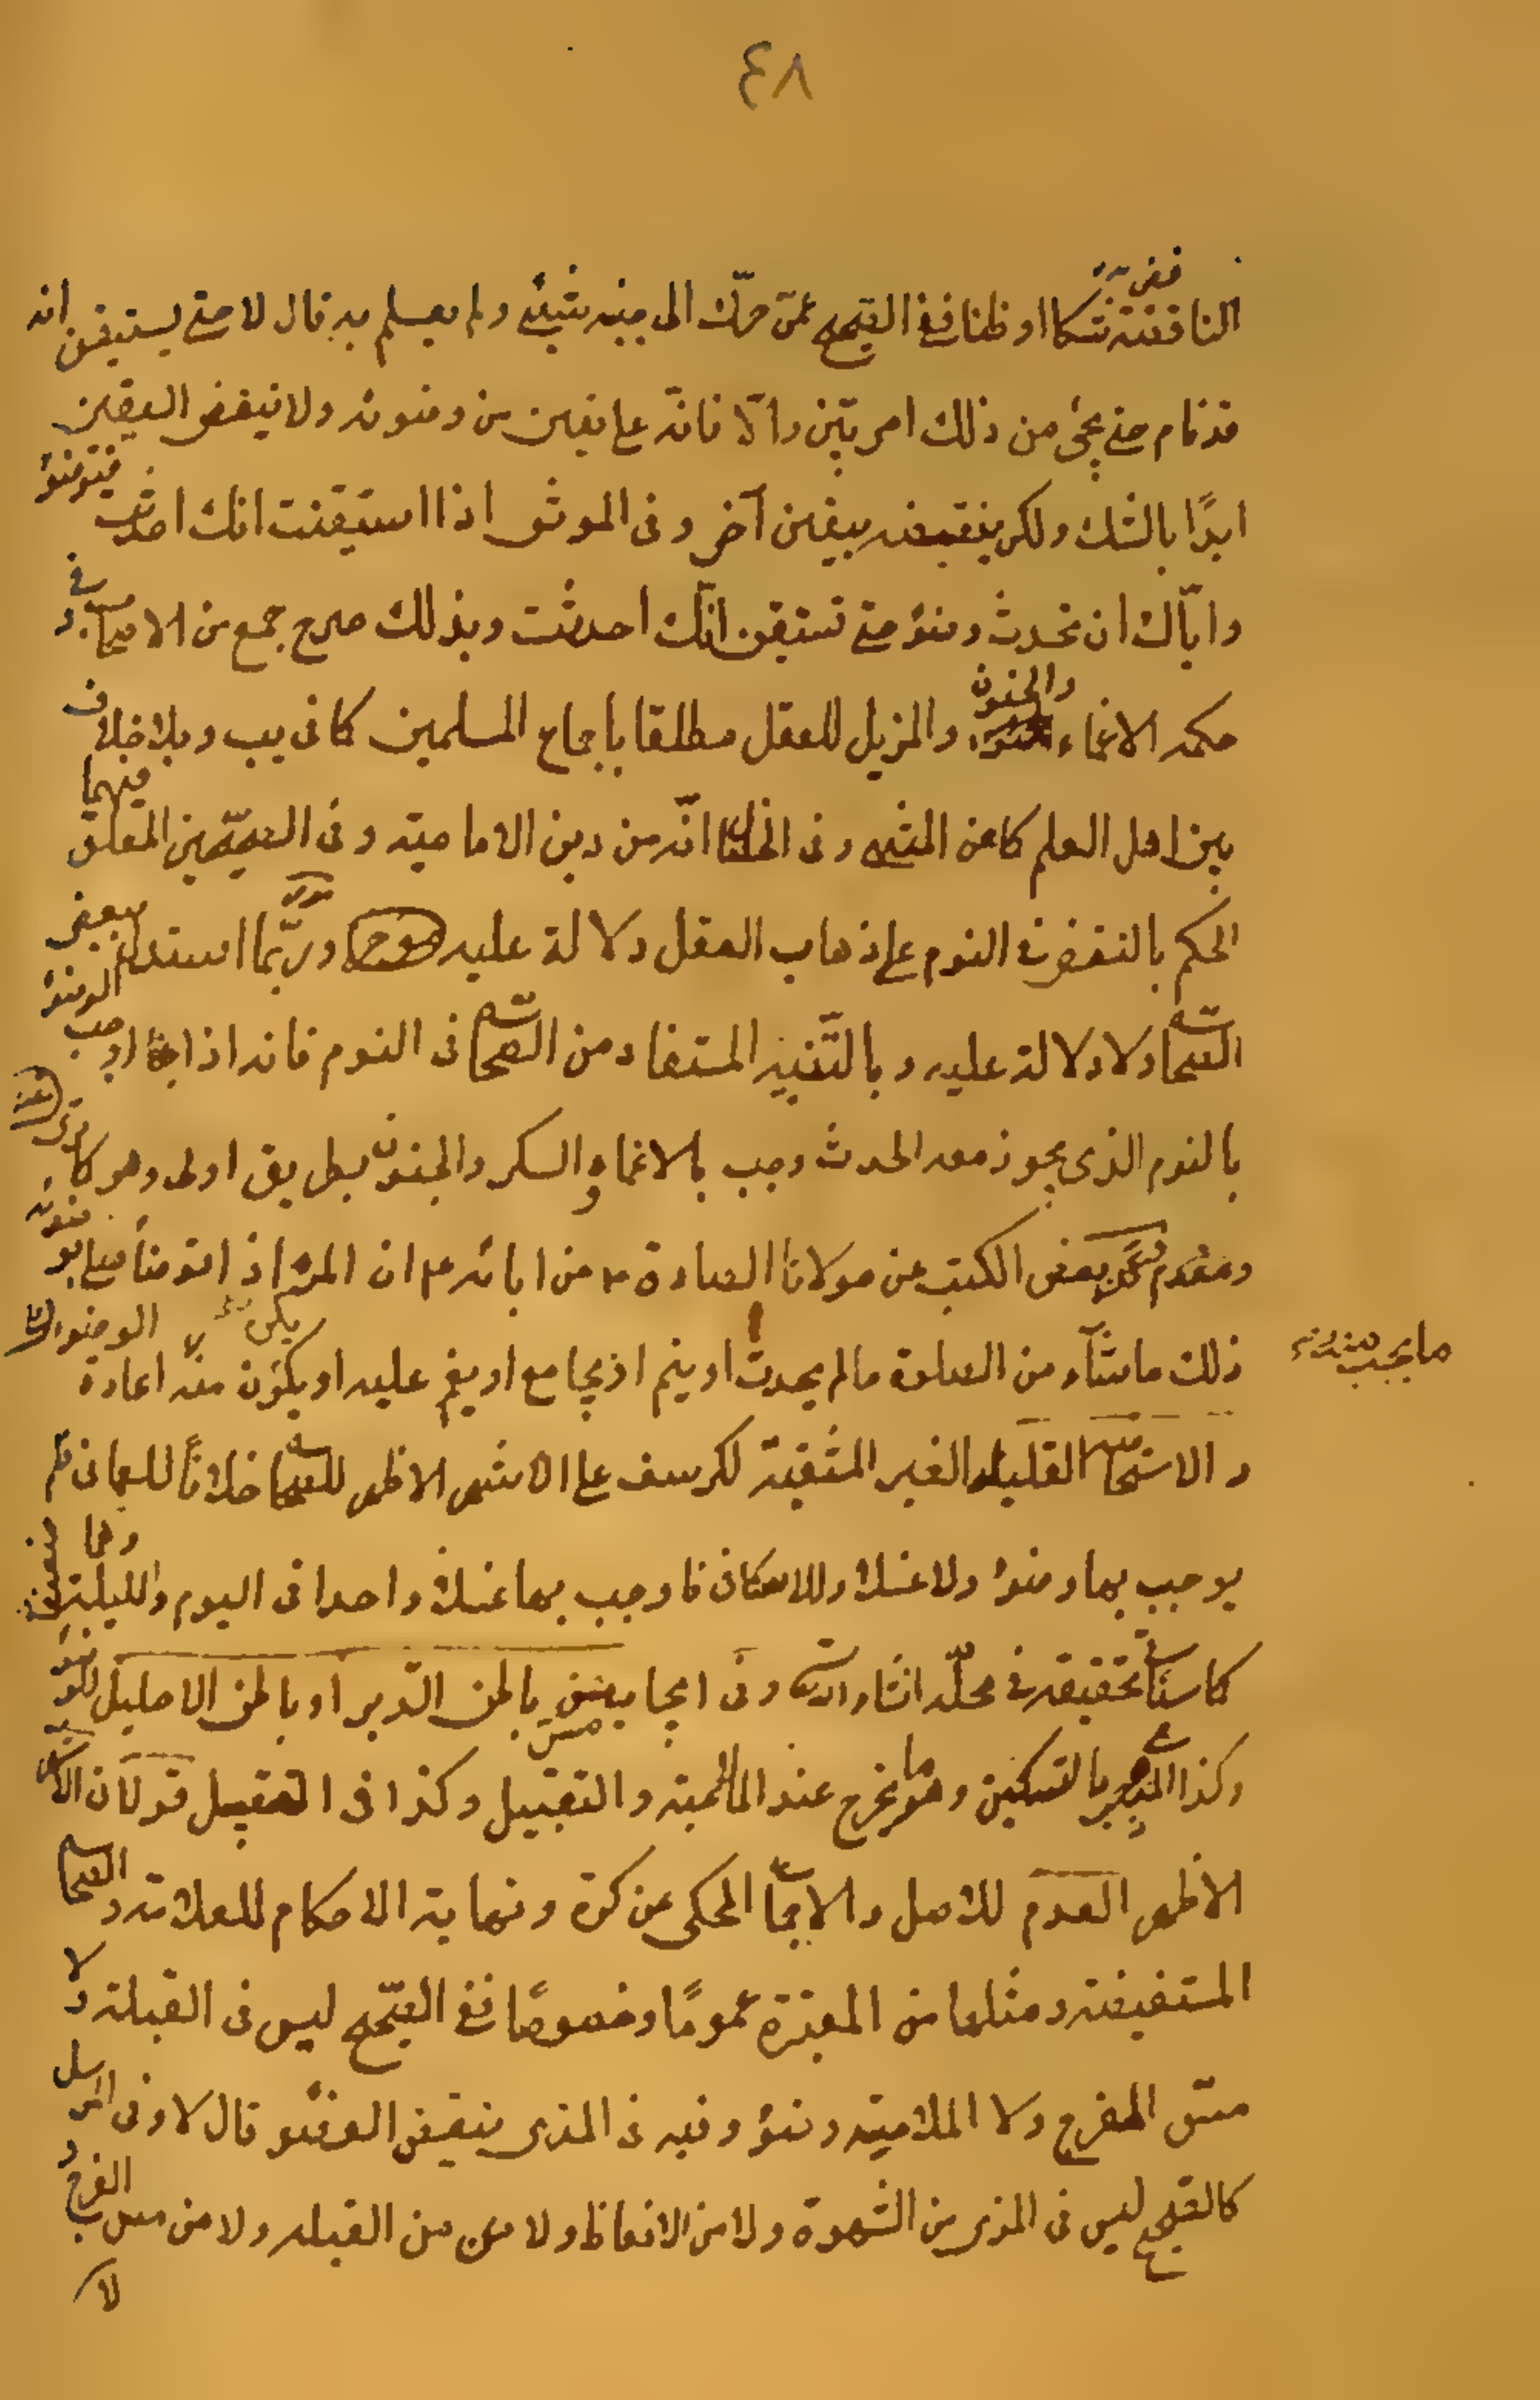 ٤٨
الناقضة شكا او ظنا ففى الصحيح عمن حرّك الى جنبه شىء ولم يعلم به قال لا حتى يستيقن انه
قد نام حتى يجىء من ذلك امر بيّن والّا فانّه على يقين من وضوئه ولا ينقض اليقين
ابدًا بالشك ولكن ينقضه بيقين آخر وفى الموثق اذا استيقنت انك احدثت فتوضؤ
وايّاك ان تحدث وضوء حتى تستيقن انّك احدثت وبذلك صرح جمع من الاصحاب وفى
حكمه الاغماء والجنون والمزيل للعقل مطلقا باجماع المسلمين كما فى يب وبلا خلاف
بين اهل العلم كما عن المنتهى وفى الخصال انّه من دين الامامية وفى الصحيحين المعلق فيهما
الحكم بالنقض فى النوم على ذهاب العقل دلالة عليه وربّما استدل ببعض
الصحاح ولا دلالة عليه وبالتّنبيه المستفاد من الصحاح فى النوم فانه اذا وجب الوضوء
بالنوم الذى يجوز معه الحدث وجب بالاغماء والسكر والجنون بطريق اولى وهو كما ترى
وعن بعض الكتب عن مولانا الصادق ع من ابائه ع ان المرء اذا توضأ صلى بوضوئه
ذلك ما شآء من الصلوة ما لم يحدث او ينم او يجامع او يغم عليه او يكون منه اعادة الوضوء
ما يجب منه
و الاستحاضة القليلة الغير المثقبة لكرسف على الاشهر الاظهر للصحاح خلافاً للعمانى فلم
يوجب بها وضوء ولا غسلا وللاسكافى فاوجب بها غسلا واحدا فى اليوم والليلة وهما ضعيفان
كما سيأتى تحقيقه فى محلّه انشاء الله وفى ايجاب مس باطن الدّبر او باطن الاحليل للوضوء
وكذا المذى بالتسكين وهو ما يخرج عند الملامسة والتقبيل وكذا فى التقبيل قولان
الاظهر العدم للاصل والاجماع المحكى عن كرة ونهاية الاحكام للعلامة والصحاح
المستفيضة ومثلها من المعتبرة عمومًا وخصوصًا ففى الصّحيح ليس فى القبلة ولا
مسّ الفرج ولا الملامسة وضوء وفيه فى المذى ينقض الوضوء قال لا وفى المرسل
كالصحيح ليس فى المذى من الشهوة ولا من الانعاظ ولا من القبلة ولا من مس الفرج و
لا